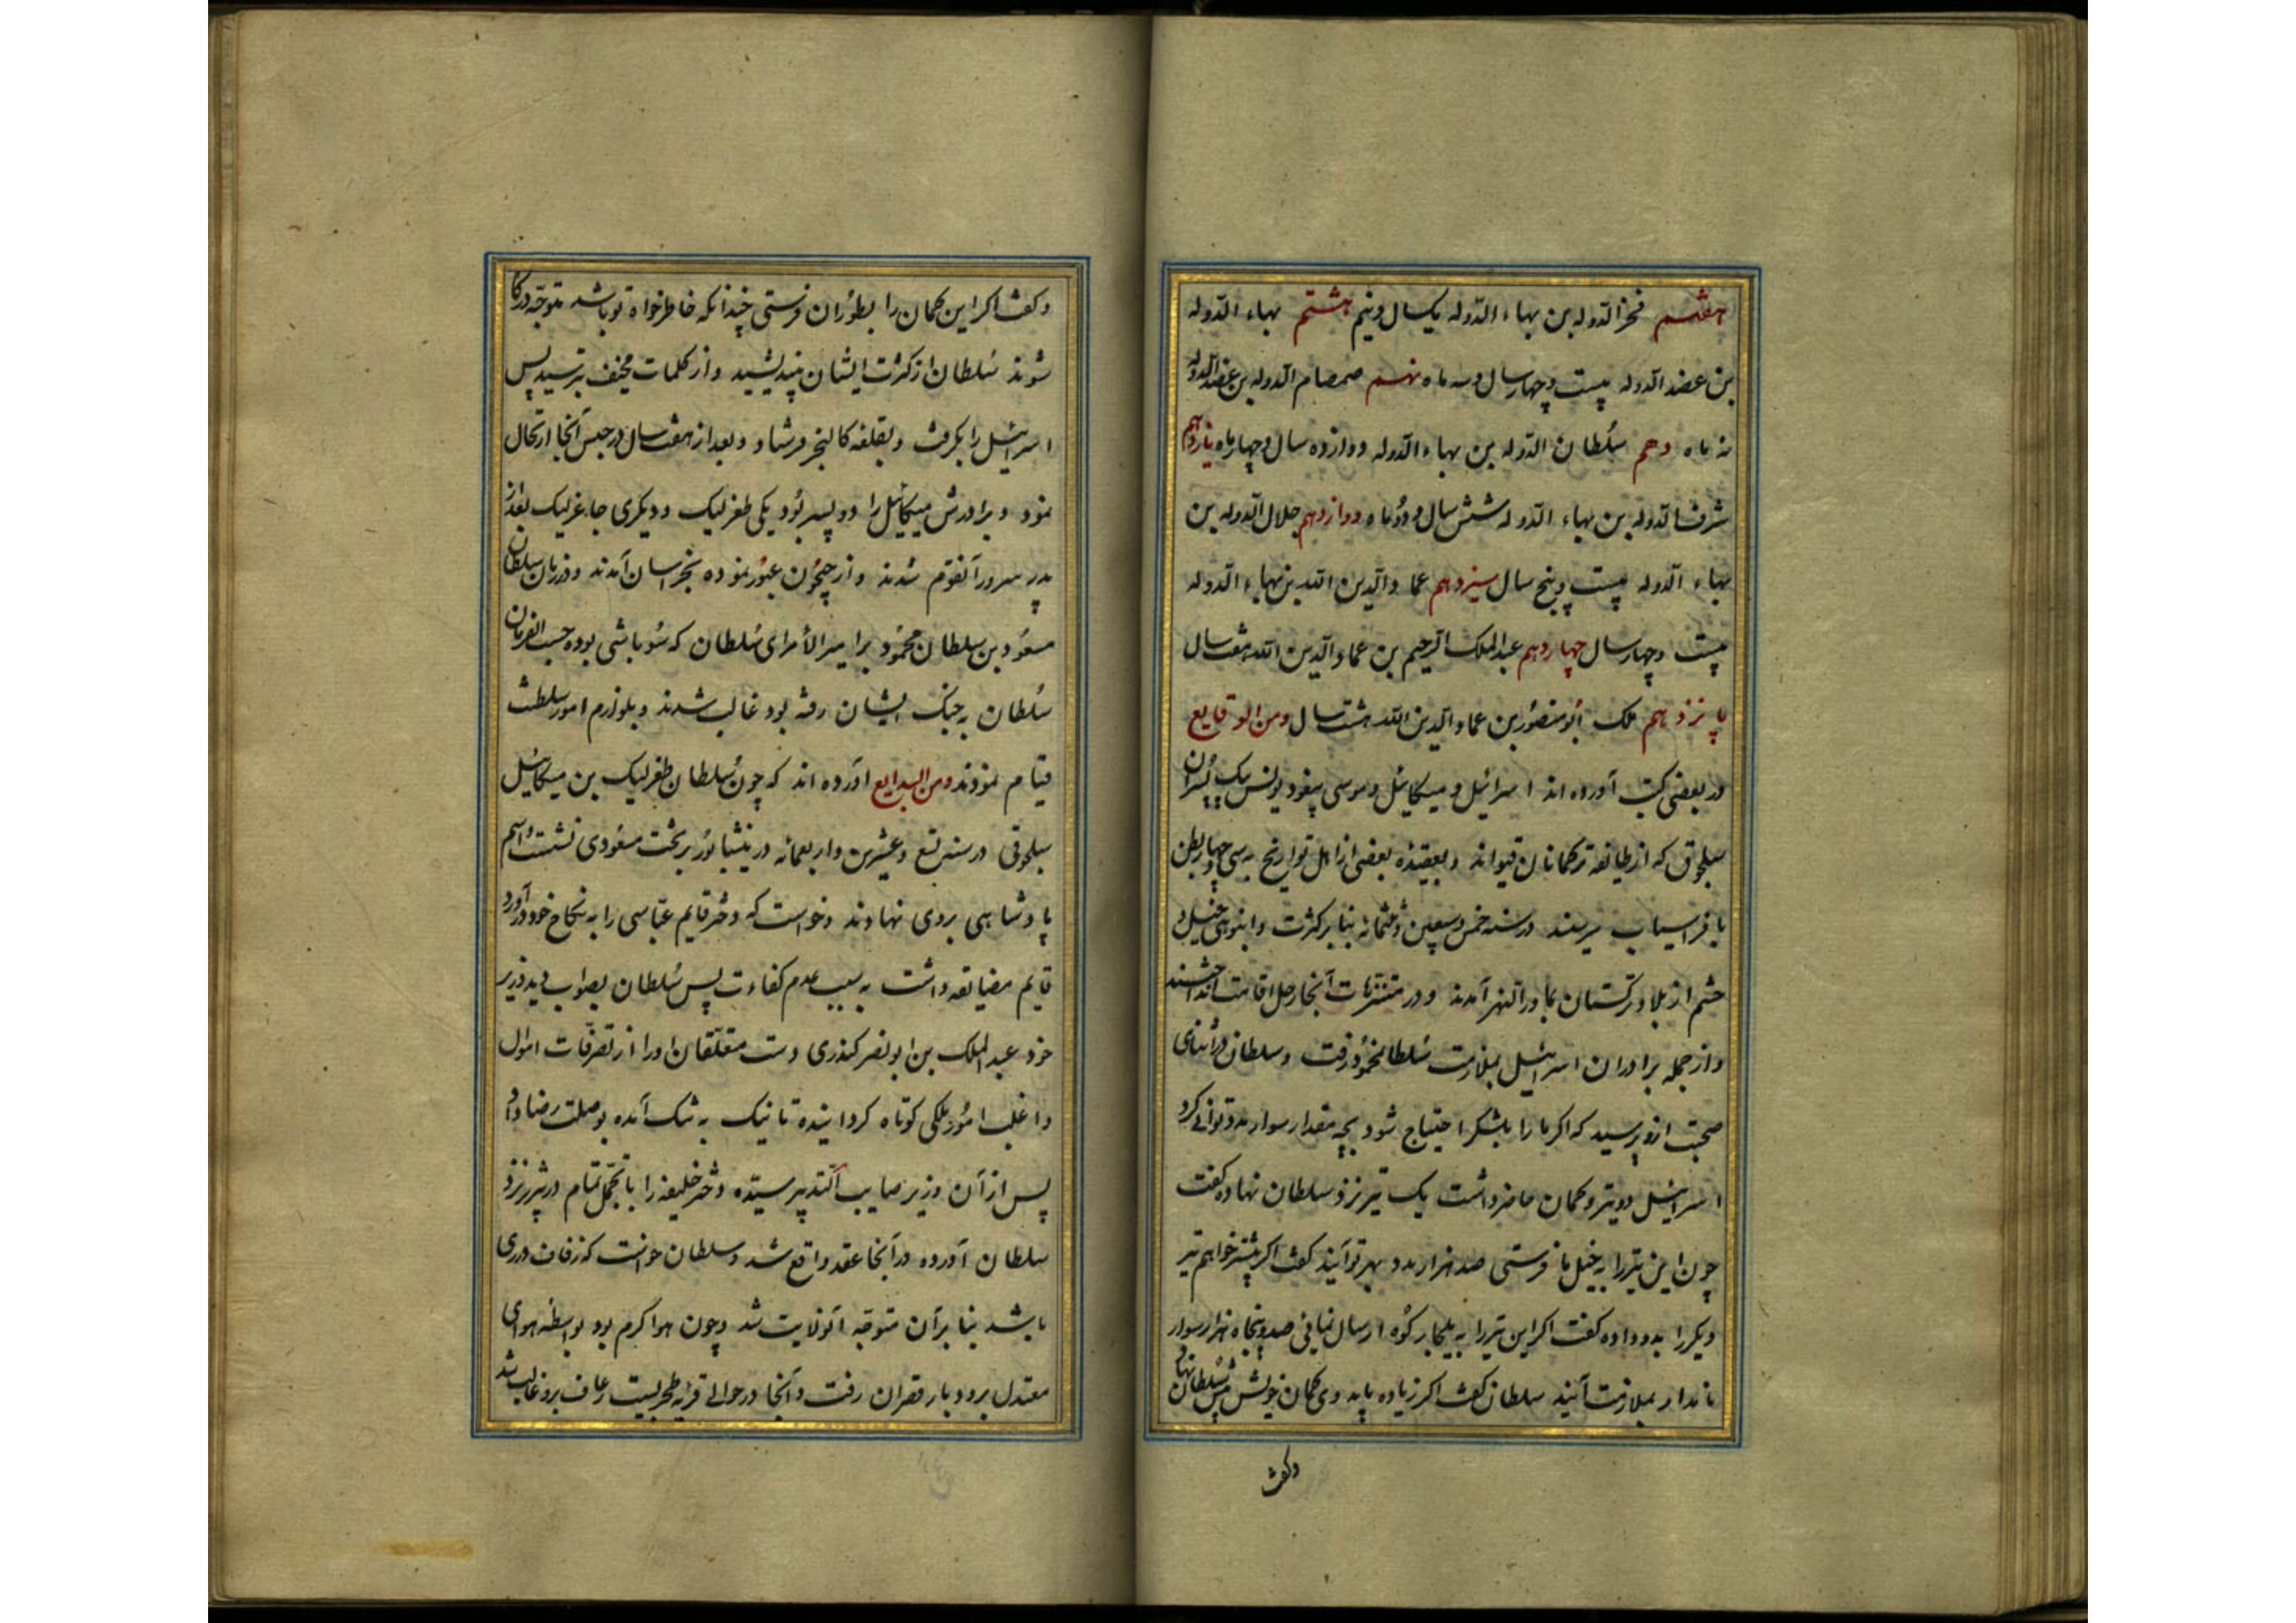 هفتم فخر الدوله بن بهاء الدوله یکسال و نیم هشتم بهاء الدوله
بن عضد الدوله بیست و چهار سال و سه ماه نهم صمصام الدوله بن عضد الدوله
نه ماه دهم سلطان الدوله بن بهاء الدوله دوازده سال و چهار ماه یازدهم
شرف الدوله بن بهاء الدوله شش سال و دو ماه دوازدهم جلال الدوله بن
بهاء الدوله بیست و پنج سال سیزدهم عماد الدین الله بن بهاء الدوله
بیست و چهار سال چهاردهم عبد الملک الرحیم بن عماد الدین الله هفت سال
پانزدهم ملک ابو منصور بن عماد الدین الله هشت سال ومن الوقایع
در بعضی کتب آورده اند اسرائیل و میکائیل و موسی پیغو و یونس پسران
سلجوق که از طایفه ترکمانان قنیو اند و بعقیده بعضی از اهل تواریخ به سی و چهار بطن
بافراسیاب میرسند در سنه خمس و سبعین و ثلثمائه بنا بر کثرت و انبوهی خیل و
حشم از بلاد ترکستان بماوراءالنهر آمدند و در متنزهات آنجا رحل اقامت انداختند
و از جمله برادران اسرائیل بملازمت سلطان محمود رفت و سلطان در اثنای
صحبت ازو پرسید که اگر ما را بلشکر احتیاج شود بچه مقدار سوار مدد توانی کرد
اسرائیل دو تیر و کمان حاضر داشت یک تیر نزد سلطان نهاده گفت
چون این تیر را به خیل ما فرستی صد هزار مرد بهر تو آیند گفت اگر بیشتر خواهم تیر
دیگر را بدو داده گفت اگر این تیر را به بلجار کوه ارسال نمائی صد و پنجاه هزار سوار
نامدار بملازمت آیند سلطان گفت اگر زیاده باید وی کمان خویش پیش سلطان نهاد
وگفت
وگفت اگر این کمان را بطوران فرستی چندانکه خاطرخواه تو باشد متوجه درگاه
شوند سلطان از کثرت ایشان بیندیشید و از کلمات مخیف بترسید پس
اسرائیل را بگرفت و بقلعه کالنجر فرستاد و بعد از هفت سال در حبس آنجا ارتحال
نمود و برادرش میکائیل را دو پسر بود یکی طغرلبک و دیگری جاغربیک بعد از
پدر سرور آنقوم شدند و از جیحون عبور نموده بخراسان آمدند و در زمان سلطان
مسعود بن سلطان محمود بر امیر الأمرای سلطان که سوباشی بوده حسب الفرمان
سلطان به جنگ ایشان رفته بود غالب شدند و بلوازم امور سلطنت
قیام نمودند ومن البدایع آورده اند که چون سلطان طغرلبک بن میکائیل
سلجوقی در سنه تسع و عشرین واربعمائه در نیشابور بر تخت مسعودی نشست اسم
پادشاهی بروی نهادند و خواست که دختر قایم عباسی را به نکاح خود درآورد
قایم مضایقه داشت به سبب عدم کفاءت پس سلطان بصواب دید وزیر
خود عبد الملک بن ابو نصر کندری دست متعلقان او را از تصرفات اموال
و اغلب امور ملکی کوتاه گردانیده تا نیک به تنگ آمده بوصلت رضا داد
پس از آن وزیر صایب التدبیر سیده دختر خلیفه را با تجمل تمام در تبریز نزد
سلطان آورده در آنجا عقد واقع شد و سلطان خواست که زفاف در ری
باشد بنا بر آن متوجه آنولایت شد و چون هوا گرم بود بواسطه هوای
معتدل برودبار قصران رفت و آنجا در حوالی قریه طجرشت رعاف برو غالب شد